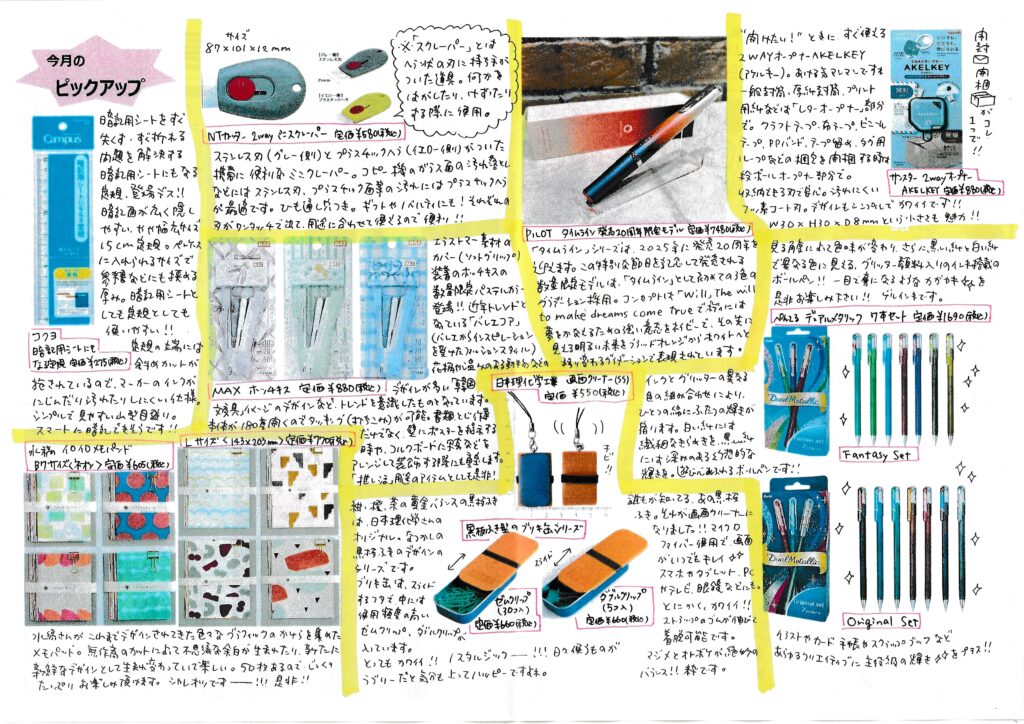 今月の
ピックアップ
Campus
暗記用シートをすぐ
失くす、すぐ折れる
問題を解決する
暗記用シートにもなる
定規、登場デス!!
暗記面が広く隠し
やすい、やや幅広サイズ
15cm定規。ペンケース
に入れられるサイズで
参考書などにも挟める
厚み。暗記用シートと
しても定規としても
使いやすい!!
定規の左端には
コクヨ
暗記用シートにも
なる定規 定価¥275(税込)
斜めカットが
施されているので、マーカーのインクが
にじんだり汚れたりしにくい仕様。
シンプルで見やすい山型目盛り。
スマートに暗記できそうです!!
サイズ
87×101×12mm
※「スクレーパー」とは
ヘラ状の刃に持ち手が
ついた道具。何かを
はがしたり、けずったり
する際に使用。
NTカッター 2wayミニスクレーパー 定価¥580(税込)
ステンレス刃(グレー側)とプラスチックヘラ(イエロー側)がついた
携帯に便利なミニスクレーパー。コピー機のガラス面の汚れ落とし
などにはステンレス刃、プラスチック面等の汚れにはプラスチックヘラ
が最適です。ひも通し穴つき。ギフトやノベルティにも!それぞれの
刃がワンタッチで出て、用途に合わせて使えるので便利!!
MAX
エラストマー素材の
カバー(ソフトグリップ)
装着のホッチキスの
数量限定パステルカラー
登場!!近年トレンドと
なっている「バレエコア」
(バレエからインスピレーション
を受けたファッションスタイル)
MAX ホッチキス 定価¥880(税込)
デザインが多い韓国
文房具イメージのデザインなど、トレンドを意識したものとなっています。
本体が180度開くのでタッキング(打ちこみ)が可能。書類とじ作業
だけでなく、壁にポスターを掲示する
時や、コルクボードに写真などを
アレンジして装飾する際にも重宝します。
「推し活」用のアイテムとしても是非!
PILOT タイムライン 発売20周年限定モデル 定価¥7480(税込)
「タイムライン」シリーズは、2025年に発売20周年を
迎えます。この特別な節目を記念して発売される
数量限定モデルは、「タイムライン」として初めての3色の
グラデーション採用。コンセプトは"Will, The will
to make dreams come true"で
夢をかなえるための強い意志をネイビーで、その先に
見える明るい未来をブラッドオレンジからホワイトへと
移り変わるグラデーションで表現されています。
"開けたい!"ときに、すぐ使える
2WAYオープナーAKELKEY
(アケルキー)。あける名アレマレンですネ
一般封筒、厚紙封筒、プリント
用紙などは「レターオープナー部分
で。クラフトテープ、布テープ、ビニール
テープ、PPバンド、テープ留め、タグ用
ループなどの梱包を開梱する時は
栓オープナー部分で。
フッ素コート刃。デザインもシンプルでカワイイです!!
W30×H30×D8mmという小ささも魅力!!
開封
開梱
がコレ
1つで!!
AKELKEY
サンスター 2wayオープナー
AKELKEY 定価¥880(税込)
見る角度によって色味が変わり、さらに黒い紙と白い紙
で異なる色に見える、グリッター顔料入りのインキ搭載の
ボールペン!! 一目で夢になるようなかがやきを
是非お楽しみ下さい!! ゲルインキです。
ぺんてる デュアルメタリック 7本セット 定価¥1690(税込)
インクとグリッターの異なる
色の組み合せにより、
ひとつの線にふたつの輝きが
宿ります。白い紙には
繊細なきらめきを、黒い紙
には深みのある幻想的な
輝きを。
Dual Metallic
Fantasy Set
Dual Metallic
Original Set
イラストやカード、手帳やスクラップブックなど
あらゆるクリエイティブに主役級の輝きをプラス!!
日本理化学工業 画面クリーナー(SS)
定価¥550(税込)
誰もが知ってる、あの黒板
ふき。それが画面クリーナーに
なりました!!マイクロ
ファイバー使用で、画面
がいつでもキレイ
スマホやタブレット、PC
やテレビ、眼鏡などにも。
とにかく、カワイイ!!
ストラップのゴムが伸びて
着脱可能です。
マジメとオトボケが絶妙の
バランス!!粋です。
紺、橙、茶の黄金バランスの黒板ふき
は、日本理化学さんの
オリジナル。なつかしの
黒板ふきのデザインの
シリーズです。
ブリキ缶は、スライド
するフタで中には
使用頻度の高い
ゼムクリップ、ダブルクリップが
入っています。
とってもカワイイ!!ノスタルジック――!!!日々使うものが
ラブリーだと気分も上ってハッピーですね。
黒板ふき型のブリキ缶シリーズ
スライド
ゼムクリップ
(30コ入)
定価¥660(税込)
ダブルクリップ
(5コ入)
定価¥660(税込)
水縞 イロイロメモパッド
B7サイズ(ネオン) 定価¥605(税込)
Lサイズ(143×203mm) 定価¥770(税込)
水縞さんがこれまでデザインされてきた色々なグラフィックのかけらを集めた
メモパッド。無作為のカットによって不思議な余白が生まれたり、新たな
新鮮なデザインとして生まれ変わっていて楽しい。50枚あるので、じっくり
たっぷりお楽しみ頂けます。シャレオツです――!!!是非!!